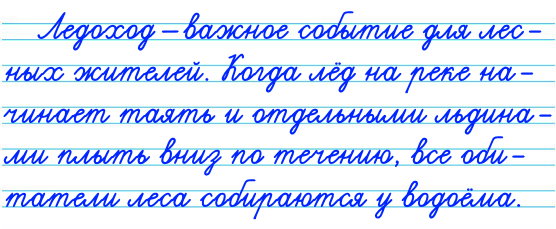 Ледоход – важное событие для лес-
ных жителей. Когда лёд на реке на-
чинает таять и отдельными льдина-
ми плыть вниз по течению, все оби-
татели леса собираются у водоёма.